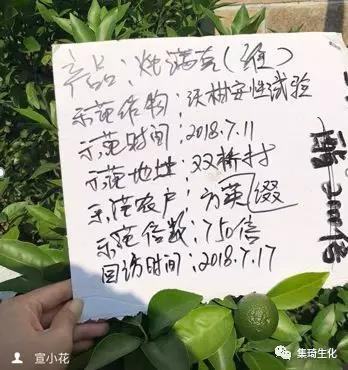 产品：
示范作物：沃柑安性试验
示范时间：2018.7.11
示范地址：双桥村
示范农户：方英
示范倍数：750倍
回访时间：2018.7.17
宣小花
集琦生化